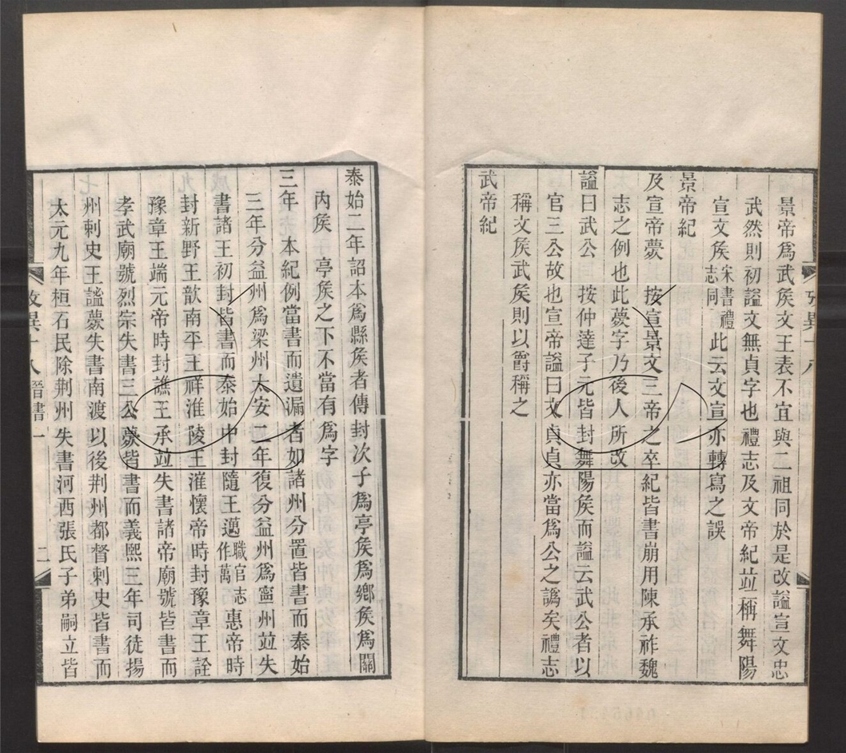 景帝爲武矦文王表不宜與二祖同於是改謚宣文忠
武然則初謚文無貞字也禮志及文帝紀竝稱舞陽
宣文矦宋書禮志同此云文宣亦轉寫之誤
景帝紀
及宣帝薨　按宣景文三帝之卒紀皆書崩用陳承祚魏
志之例也此薨字乃後人所改
謚曰武公　按仲達子元皆封舞陽矦而謚云武公者以
官三公故也宣帝謚曰文貞貞亦當爲公之譌矣禮志
稱文矦武矦則以爵稱之
武帝紀
攷異十八
泰始二年詔本爲縣矦者傳封次子爲亭矦爲鄉矦爲關
內矦　亭矦之下不當有爲字
三年　本紀例當書而遺漏者如諸州分置皆書而泰始
三年分益州爲梁州太安二年復分益州爲寧州竝失
書諸王初封皆書而泰始中封隨王邁職官志作萬惠帝時
封新野王歆南平王祥淮陵王漼懷帝時封豫章王詮
豫章王端元帝時封譙王承竝失書諸帝廟號皆書而
孝武廟號烈宗失書三公薨皆書而義熙三年司徒揚
州刺史王謐薨失書南渡以後荆州都督刺史皆書而
太元九年桓石民除荆州失書河西張氏子弟嗣立皆
攷異十八　晉書一　二